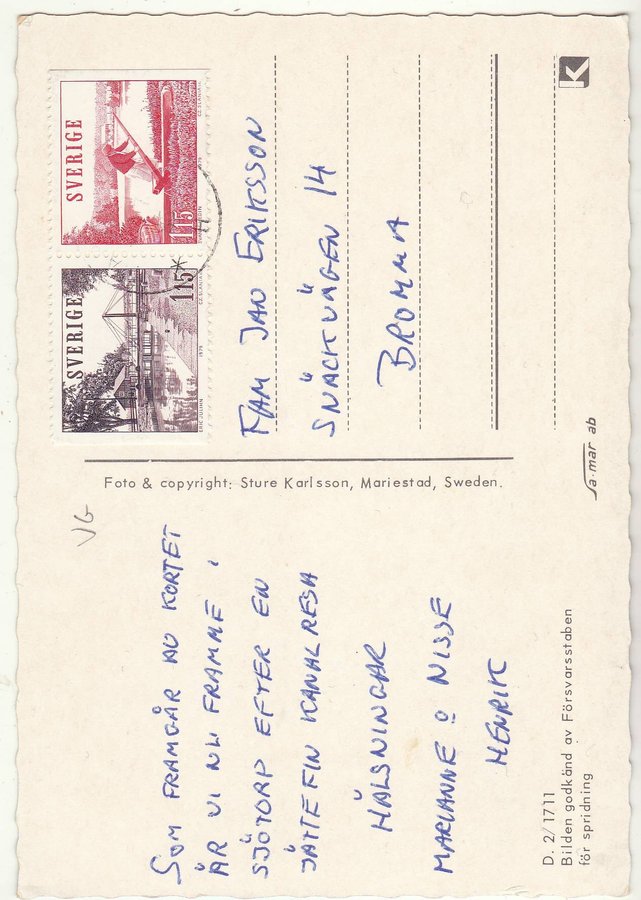 VG
SOM FRAMGÅR AV KORTET
ÄR VI NU FRAMME I
SJÖTORP EFTER EN
JÄTTEFIN KANALRESA
HÄLSNINGAR
MARIANNE O NISSE
HENRIK
D. 2/1711
Bilden godkänd av Försvarsstaben
för spridning
Foto & copyright: Sture Karlsson, Mariestad, Sweden.
SVERIGE
115
SVERIGE
115
FAM JAN ERIKSSON
SNÄCKVÄGEN 14
BROMMA
K
sa-mar ab